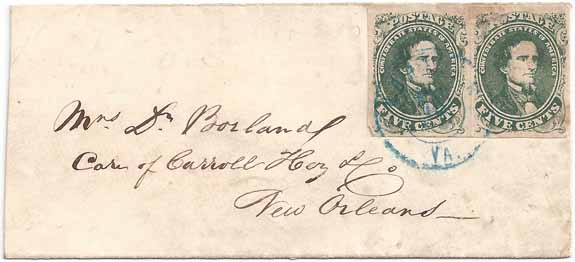 POSTAGE POSTAGE
CONFEDERATE STATES OF AMERICA CONFEDERATE STATES OF AMERICA
FIVE CENTS FIVE CENTS
VA.
Mrs Dr Borland
Care of Carroll Hoy & Co
New Orleans